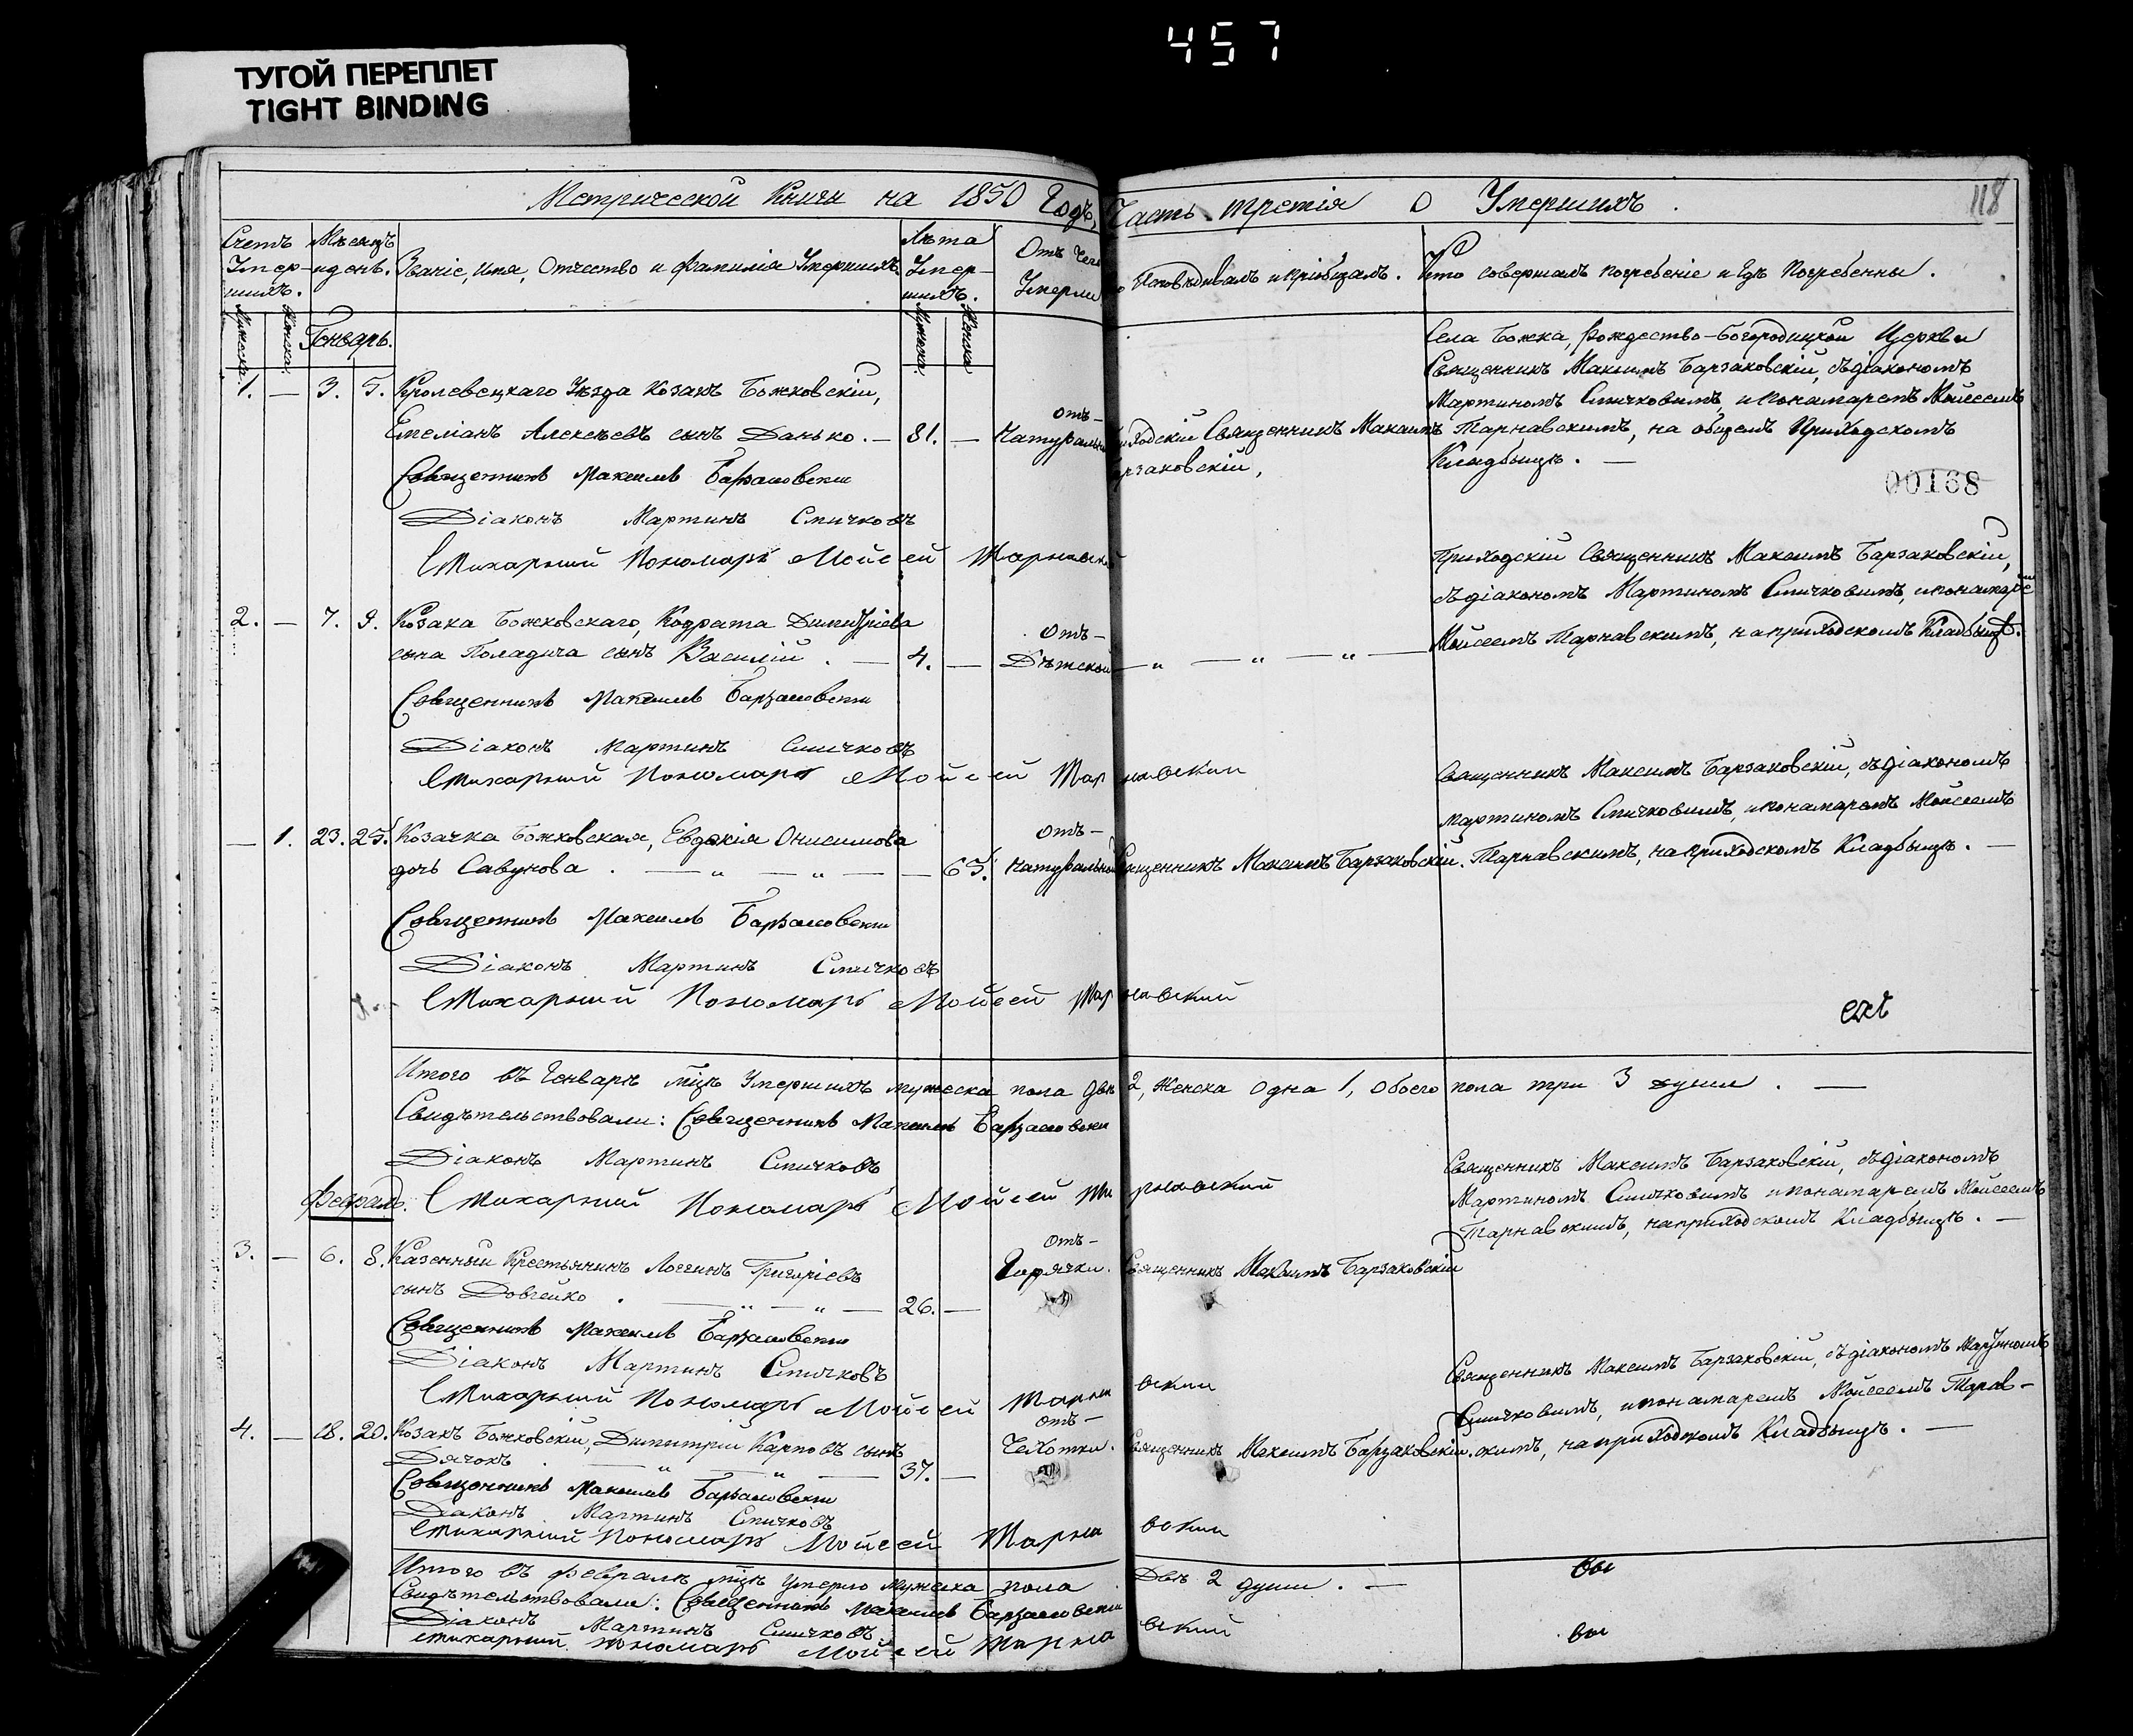 457
ТУГОЙ ПЕРЕПЛЕТ
TIGHT BINDING
Метрической Книги на 1850 Годъ, Часть третія о Умершихъ.
118
Счетъ Умер-шихъ. Мужеска. Женска.
Мѣсяцъ и день.
Званіе, имя, Отчество и фамилія Умершихъ.
Лѣта Умер-шихъ. Мужеска. Женска
Отъ чего Умерли
Исповѣдывалъ и пріобщалъ.
Кто совершалъ погребеніе и гдѣ Погребенны.
Генварь.
1. — 3. 5. Кролевецкаго Уѣзда Козакъ Божковскій,
Емеліанъ Алексѣевъ сынъ Данько. — 81. —
отъ-
Натуральной
Приходскій Священникъ Максимъ
Барзаковскій,
Села Божка, Рождество-Богородицкой Церкви
Священникъ Максимъ Барзаковскій, съ діакономъ
Мартиномъ Спичковимъ, и понамаремъ Мойсеемъ
Тарнавскимъ, на общемъ Приходскомъ
Кладбыщѣ. —
00168
Священникъ Максимъ Барзаковскій
Діаконъ Мартинъ Спичковъ
Стихарный Пономарь Мойсей Тарнавский
2. — 7. 9. Козака Божковскаго, Кодрата Димитріева
сына Поладича сынъ Василій. — 4. —
отъ-
Дѣтской — „ — „ — „ —
Приходскій Священникъ Максимъ Барзаковскій,
съ діакономъ Мартиномъ Спичковимъ, и понамаремъ
Мойсеемъ Тарнавскимъ, на приходскомъ Кладбыщѣ.
Священникъ Максимъ Барзаковскій
Діаконъ Мартинъ Спичковъ
Стихарный Пономарь Мойсей Тарнавский
— 1. 23. 25. Козачка Божковская, Евдокія Онисимова
дочь Савунова. — „ — „ — — 65.
отъ-
Натуральной
Священникъ Максимъ Барзаковскій.
Священникъ Максимъ Барзаковскій, съ діакономъ
Мартиномъ Спичковимъ, и понамаремъ Мойсеемъ
Тарнавскимъ, на приходскомъ Кладбыщѣ. —
Священникъ Максимъ Барзаковскій
Діаконъ Мартинъ Спичковъ
Стихарный Пономарь Мойсей Тарнавский
Итого въ Генварѣ мцѣ Умершихъ мужеска пола двѣ 2, Женска одна 1, Обоего пола три 3 души. —
Свидѣтельствовали: Священникъ Максимъ Барзаковскій
Діаконъ Мартинъ Спичковъ
Стихарний Пономарь Мойсей Тарнавский
Февраль.
3. — 6. 8. Казенный Крестьянинъ Логгинъ Григоріевъ
сынъ Довгейко. — „ — „ — 26. —
отъ-
Горячки.
Священникъ Максимъ Барзаковскій
Священникъ Максимъ Барзаковскій, съ діакономъ
Мартиномъ Спичковимъ и понамаремъ Мойсеемъ
Тарнавскимъ, на приходскомъ Кладбыщѣ. —
Священникъ Максимъ Барзаковскій
Діаконъ Мартинъ Спичковъ
Стихарный Пономарь Мойсей Тарнавский
4. — 18. 20. Козакъ Божковскій, Димитрій Карповъ сынъ
Дячокъ. — „ — „ — 37. —
отъ-
Чахотки.
Священникъ Максимъ Барзаковскій.
Священникъ Максимъ Барзаковскій, съ діакономъ Мартиномъ
Спичковимъ, и понамаремъ Мойсеемъ Тарнав-
скимъ, на приходскомъ Кладбыщѣ. —
Священникъ Максимъ Барзаковскій
Діаконъ Мартинъ Спичковъ
Стихарный Пономарь Мойсей Тарнавский
Итого въ Февралѣ мцѣ Умерло Мужеска пола Двѣ 2 души. —
Свидѣтельствовали: Священникъ Максимъ Барзаковскій
Діаконъ Мартинъ Спичковъ
Стихарний Пономарь Мойсей Тарнавский